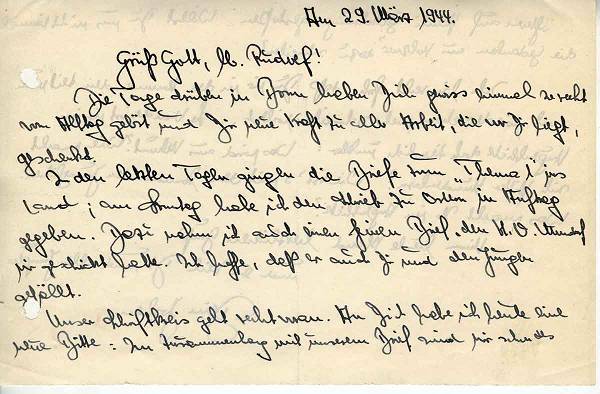 Am 29. März 1944.
Grüß Gott, lb. Rudolf!
Die Tage drüben in Bonn haben Dich gewiss einmal so recht
vom Alltag gelöst und Dir neue Kraft zu aller Arbeit, die vor Dir liegt,
geschenkt.
In den letzten Tagen gingen die Briefe zum „Thema I" ins
Land; am Sonntag habe ich den Schrieb zu Ostern in Auftrag
gegeben. Dazu nahm ich auch einen feinen Brief, den
mir geschickt hatte. Ich hoffe, daß er auch Dir und den Jungen
gefällt.
Unser Schriftkreis geht recht voran. An Dich habe ich heute eine
neue Bitte: Im Zusammenhang mit unserem Brief sind wir